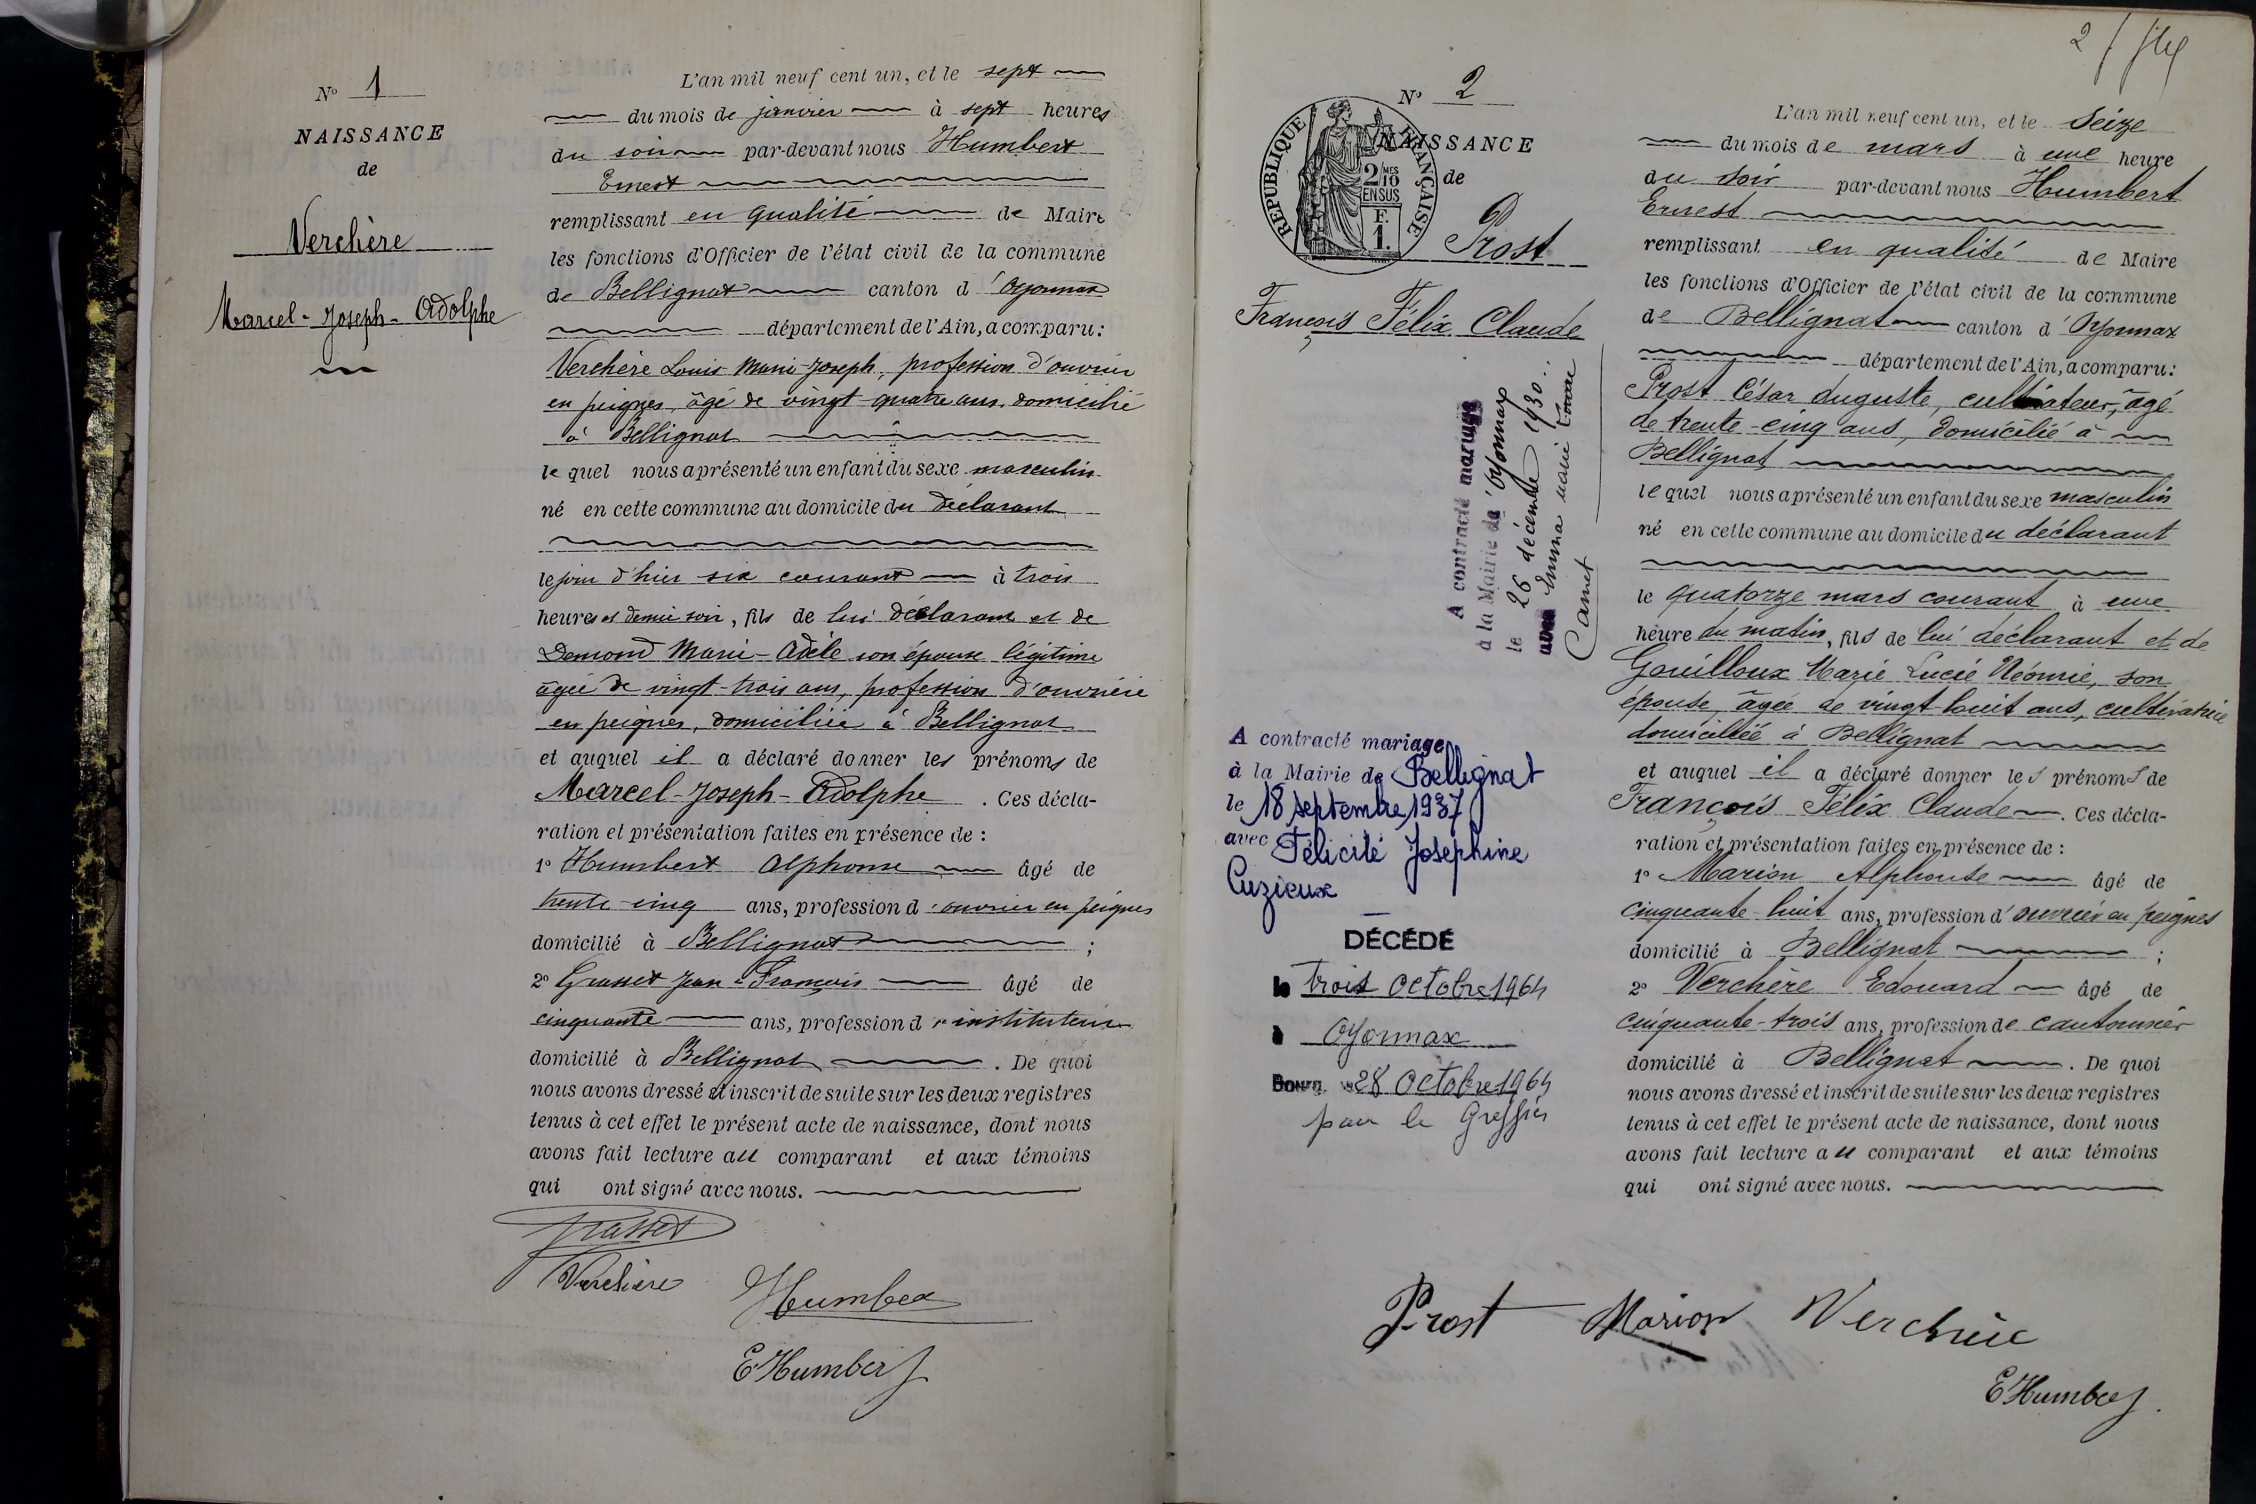 N° 1
NAISSANCE
de
Verchère
Marcel-Joseph-Adolphe
L'an mil neuf cent un, et le sept
du mois de janvier à sept heures
du soir par-devant nous Humbert
Ernest
remplissant en qualité de Maire
les fonctions d'Officier de l'état civil de la commune
de Bellignat canton d'Oyonnax
département de l'Ain, a comparu :
Verchère Louis Marie Joseph, profession d'ouvrier
en peignes, âgé de vingt-quatre ans, domicilié
à Bellignat
lequel nous a présenté un enfant du sexe masculin
né en cette commune au domicile du déclarant
le jour d'hier six courant à trois
heures et demie soir, fils de lui déclarant et de
Demond Marie-Adèle son épouse légitime
âgée de vingt-trois ans, profession d'ouvrière
en peignes, domiciliée à Bellignat
et auquel il a déclaré donner les prénoms de
Marcel-Joseph-Adolphe. Ces décla-
ration et présentation faites en présence de :
1° Humbert Alphonse âgé de
trente-cinq ans, profession d'ouvrier en peignes
domicilié à Bellignat ;
2° Grasset Jean-François âgé de
cinquante ans, profession d'instituteur
domicilié à Bellignat. De quoi
nous avons dressé et inscrit de suite sur les deux registres
tenus à cet effet le présent acte de naissance, dont nous
avons fait lecture au comparant et aux témoins
qui ont signé avec nous.
Grasset
Verchère
Humbert
E Humbert
2
N° 2
NAISSANCE
de
RÉPUBLIQUE FRANÇAISE
2/10 MES
EN SUS
F.
1.
Prost
François Félix Claude
A contracté mariage
à la Mairie de Oyonnax
le 26 décembre 1930
avec Emma Marie
Canet
A contracté mariage
à la Mairie de Bellignat
le 18 septembre 1937
avec Félicité Joséphine
Cuzieux
DÉCÉDÉ
le trois octobre 1964
à Oyonnax
Bourg, le 28 octobre 1964
pour le Greffier
L'an mil neuf cent un, et le seize
du mois de mars à une heure
du soir par-devant nous Humbert
Ernest
remplissant en qualité de Maire
les fonctions d'Officier de l'état civil de la commune
de Bellignat canton d'Oyonnax
département de l'Ain, a comparu :
Prost César Auguste, cultivateur, âgé
de trente-cinq ans, domicilié à
Bellignat
lequel nous a présenté un enfant du sexe masculin
né en cette commune au domicile du déclarant
le quatorze mars courant à une
heure du matin, fils de lui déclarant et de
Gouilloux Marie Lucie Néomie, son
épouse, âgée de vingt-huit ans, cultivatrice
domiciliée à Bellignat
et auquel il a déclaré donner les prénoms de
François Félix Claude. Ces décla-
ration et présentation faites en présence de :
1° Marion Alphonse âgé de
cinquante-huit ans, profession d'ouvrier en peignes
domicilié à Bellignat ;
2° Verchère Edouard âgé de
cinquante-trois ans, profession de cantonnier
domicilié à Bellignat. De quoi
nous avons dressé et inscrit de suite sur les deux registres
tenus à cet effet le présent acte de naissance, dont nous
avons fait lecture au comparant et aux témoins
qui ont signé avec nous.
Prost Marion Verchère
E Humbert